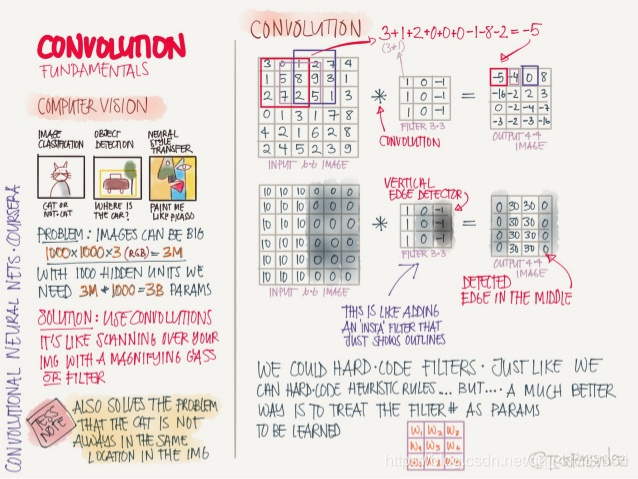 CONVOLUTION
FUNDAMENTALS
COMPUTER VISION
IMAGE CLASSIFICATION
OBJECT DETECTION
NEURAL STYLE TRANSFER
CAT OR NOT CAT
WHERE IS THE CAR?
PAINT ME LIKE PICASSO
PROBLEM: IMAGES CAN BE BIG
1000×1000×3 (RGB) = 3M
WITH 1000 HIDDEN UNITS WE
NEED 3M * 1000 = 3B PARAMS
SOLUTION: USE CONVOLUTIONS
IT'S LIKE SCANNING OVER YOUR
IMG WITH A MAGNIFYING GLASS
OR FILTER
TESS NOTE
ALSO SOLVES THE PROBLEM
THAT THE CAT IS NOT
ALWAYS IN THE SAME
LOCATION IN THE IMG
CONVOLUTIONAL NEURAL NETS · COURSERA
CONVOLUTION
3+1+2+0+0+0-1-8-2=-5
(3*1)
3 0 1 2 7 4
1 5 8 9 3 1
2 7 2 5 1 3
0 1 3 1 7 8
4 2 1 6 2 8
2 4 5 2 3 9
INPUT 6·6 IMAGE
*
CONVOLUTION
1 0 -1
1 0 -1
1 0 -1
FILTER 3×3
=
-5 -4 0 8
-10 -2 2 3
0 -2 -4 -7
-3 -2 -3 -16
OUTPUT 4×4 IMAGE
10 10 10 0 0 0
10 10 10 0 0 0
10 10 10 0 0 0
10 10 10 0 0 0
10 10 10 0 0 0
10 10 10 0 0 0
INPUT 6·6 IMAGE
*
VERTICAL
EDGE DETECTOR
1 0 -1
1 0 -1
1 0 -1
FILTER 3×3
=
0 30 30 0
0 30 30 0
0 30 30 0
0 30 30 0
OUTPUT 4×4 IMAGE
THIS IS LIKE ADDING
AN 'INSTA' FILTER THAT
JUST SHOWS OUTLINES
DETECTED
EDGE IN THE MIDDLE
WE COULD HARD-CODE FILTERS · JUST LIKE WE
CAN HARD-CODE HEURISTIC RULES... BUT... A MUCH BETTER
WAY IS TO TREAT THE FILTER # AS PARAMS
TO BE LEARNED
W₁ W₂ W₃
W₄ W₅ W₆
W₇ W₈ W₉